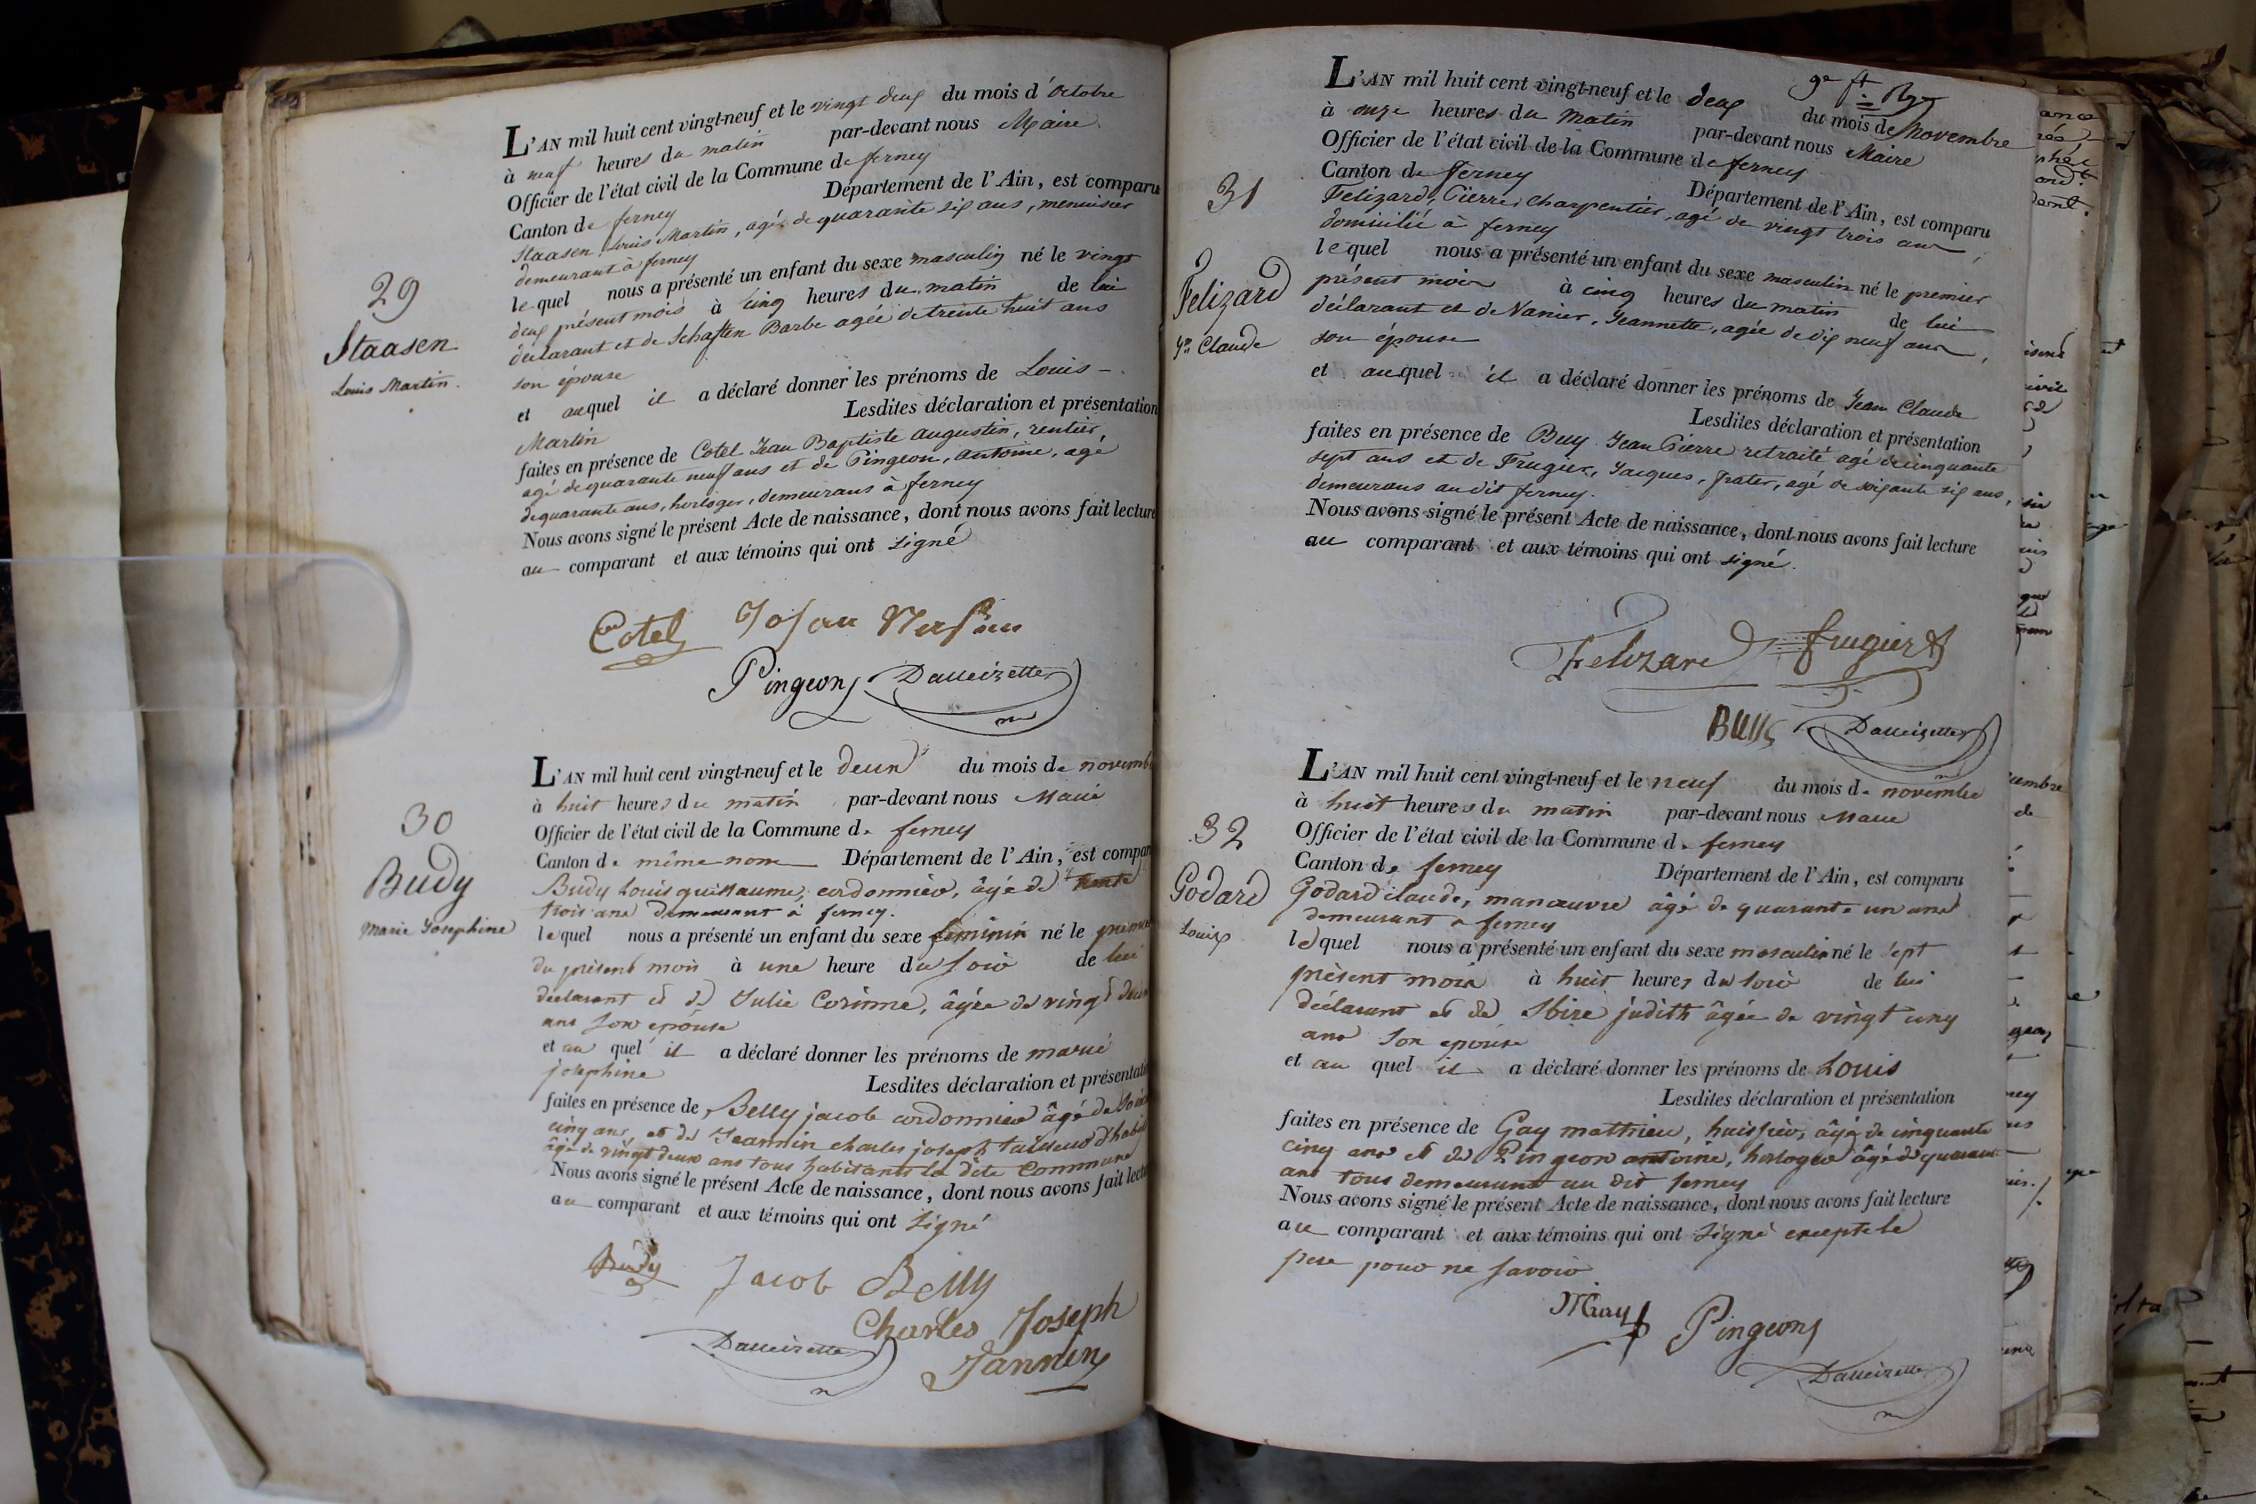 L'AN mil huit cent vingt-neuf et le vingt deux du mois d'Octobre
à neuf heures du matin par-devant nous Maire
Officier de l'état civil de la Commune de ferney
Canton de ferney Département de l'Ain, est comparu
Staasen Louis Martin, agé de quarante six ans, menuisier
demeurant à ferney
29
Staasen
Louis Martin.
lequel nous a présenté un enfant du sexe masculin né le vingt
deux présent mois à cinq heures du matin de lui
déclarant et de Schaften Barbe agée de trente huit ans
son épouse
et auquel il a déclaré donner les prénoms de Louis -
Martin Lesdites déclaration et présentation
faites en présence de Cotel Jean Baptiste augustin, rentier,
agé de quarante neuf ans et de Pingeon, Antoine, agé
de quarante ans, horloger, demeurans à ferney
Nous avons signé le présent Acte de naissance, dont nous avons fait lecture
au comparant et aux témoins qui ont signé
Cotel
Pingeon Dalleizette
L'AN mil huit cent vingt-neuf et le deux du mois de novembre
à huit heures du matin par-devant nous Maire
Officier de l'état civil de la Commune de ferney
Canton de même nom Département de l'Ain, est comparu
30
Budy
Marie Josephine
Budy Louis guillaume, cordonnier, âgé de trente
trois ans demeurant à ferney.
lequel nous a présenté un enfant du sexe féminin né le premier
du présent mois à une heure du soir de lui
déclarant et de Julie Corinne, âgée de vingt deux
ans son épouse
et au quel il a déclaré donner les prénoms de marie
josephine Lesdites déclaration et présentation
faites en présence de Belly jacob cordonnier âgé de
cinq ans et de Jeannin charles joseph tailleur d'habit
âgé de vingt deux ans tous habitants la dite Commune
Nous avons signé le présent Acte de naissance, dont nous avons fait lecture
au comparant et aux témoins qui ont signé
Budy Jacob Belly
Charles Joseph
Dalleizette Jannin
9e ft
L'AN mil huit cent vingt-neuf et le deux du mois de Novembre
à onze heures du matin par-devant nous Maire
Officier de l'état civil de la Commune de ferney
Canton de ferney Département de l'Ain, est comparu
31
Felizard
Jn Claude
Felizard, Pierre, charpentier, agé de vingt trois ans,
domicilié à ferney
lequel nous a présenté un enfant du sexe masculin né le premier
présent mois à cinq heures du matin de lui
déclarant et de Vanier, Jeannette, agée de dix neuf ans,
son épouse
et auquel il a déclaré donner les prénoms de Jean Claude
Lesdites déclaration et présentation
faites en présence de Buy Jean Pierre retraité agé de cinquante
sept ans et de Frugier, Jacques, frater, agé de soixante six ans,
demeurans au dit ferney.
Nous avons signé le présent Acte de naissance, dont nous avons fait lecture
au comparant et aux témoins qui ont signé.
Felizard frugier
Dalleizette
L'AN mil huit cent vingt-neuf et le neuf du mois de novembre
à huit heures du matin par-devant nous Maire
Officier de l'état civil de la Commune de ferney
Canton de ferney Département de l'Ain, est comparu
32
Godard
Louis
Godard claude, manœuvre âgé de quarante un ans
demeurant à ferney
lequel nous a présenté un enfant du sexe masculin né le sept
présent mois à huit heures du soir de lui
déclarant et de judith âgée de vingt cinq
ans son épouse
et au quel il a déclaré donner les prénoms de Louis
Lesdites déclaration et présentation
faites en présence de Gay mathieu, huissier, âgé de cinquante
cinq ans et de Pingeon antoine, horloger âgé de quarante
ans tous demeurant au dit ferney
Nous avons signé le présent Acte de naissance, dont nous avons fait lecture
au comparant et aux témoins qui ont signé excepté le
pere pour ne savoir
Pingeon
Dalleizette